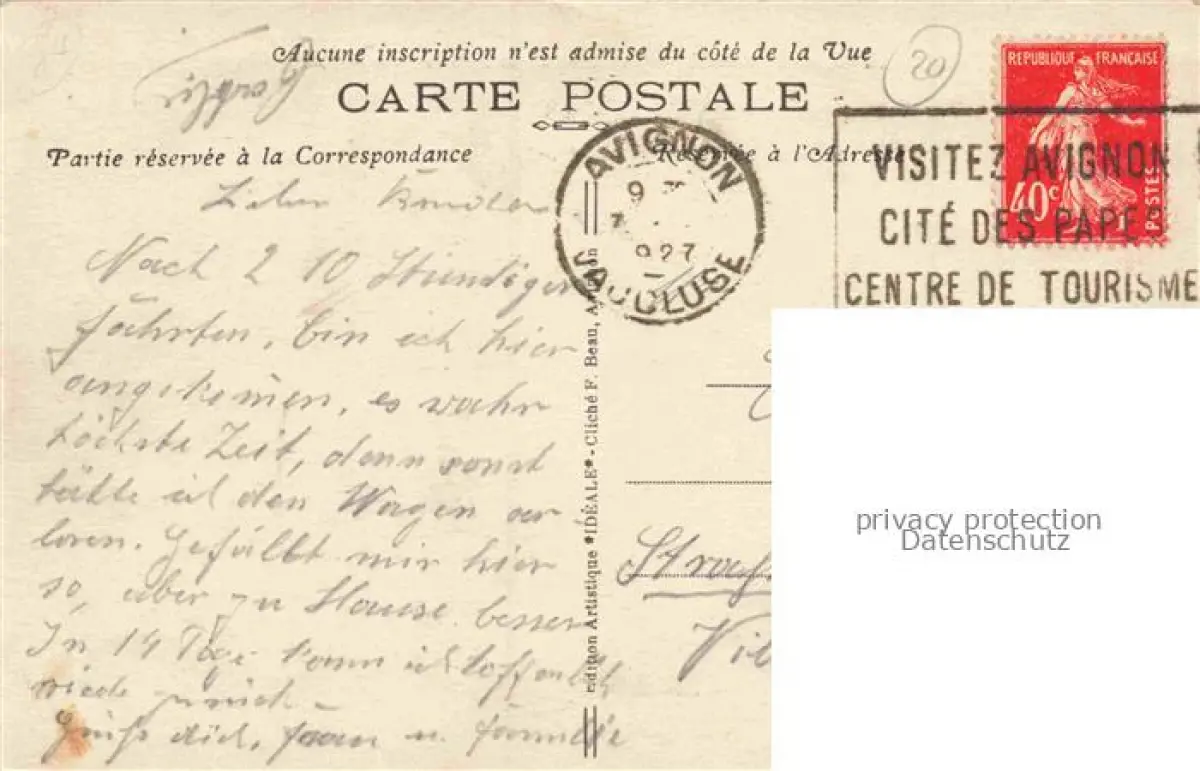 Aucune inscription n'est admise du côté de la Vue
20
REPUBLIQUE FRANÇAISE
CARTE POSTALE
40c
POSTES
Partie réservée à la Correspondance
Réservée à l'Adresse
AVIGNON
9
1927
VAUCLUSE
VISITEZ AVIGNON
CITÉ DES PAPES
CENTRE DE TOURISME
Nach 2 10 Stündiger
fährten, bin ich hier
angekomen, es wahr
höchste Zeit, denn sonst
hätte ich den Wagen ver
loren. Gefällt mir hier
so, aber zu Hause besser
In 14 Tage kann ich hoffentlich
Grüße dich, frau u. familie
Edition Artistique *IDÉALE* - Cliché F. Beau, Avignon
privacy protection
Datenschutz